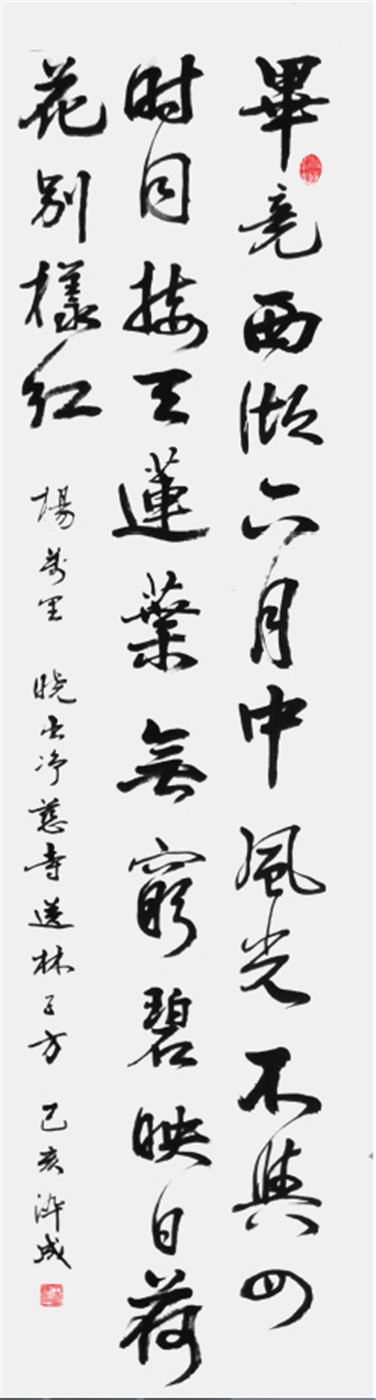 畢竟西湖六月中風光不與四
时同接天蓮葉無窮碧映日荷
花别樣红 楊萬里 晓出净慈寺送林子方 己亥 成